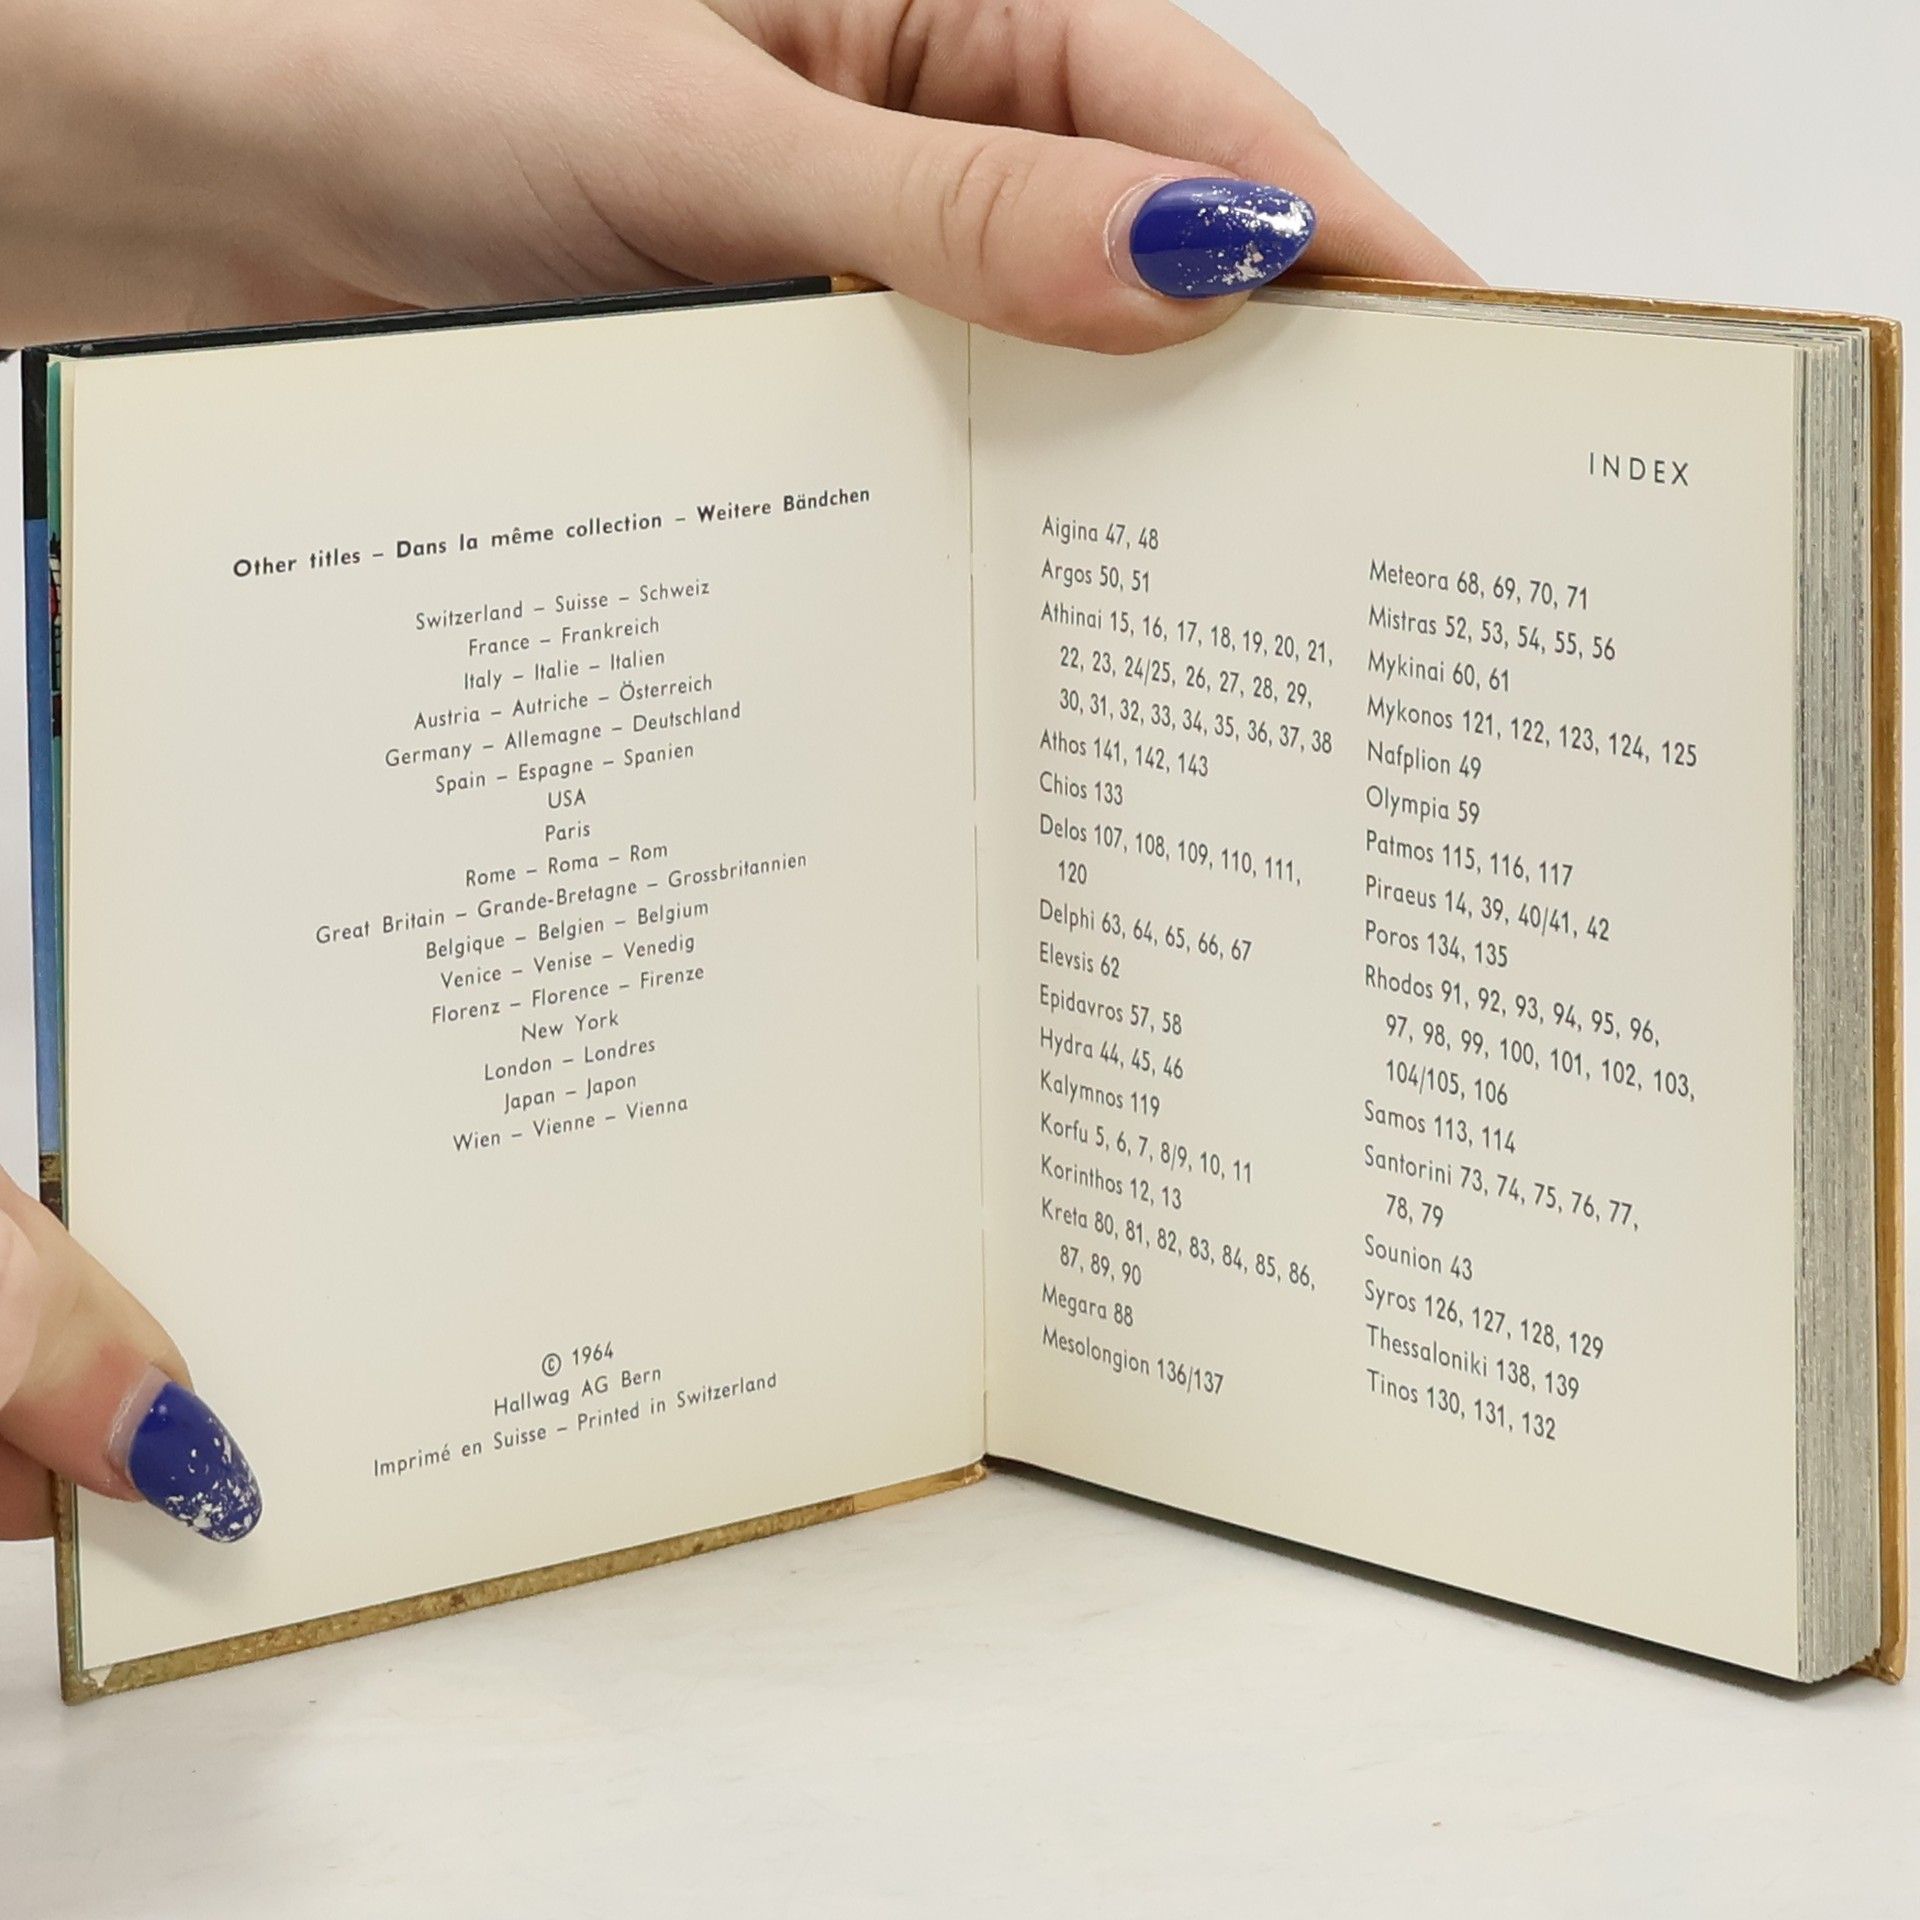 Other titles – Dans la même collection – Weitere Bändchen
Switzerland – Suisse – Schweiz
France – Frankreich
Italy – Italie – Italien
Austria – Autriche – Österreich
Germany – Allemagne – Deutschland
Spain – Espagne – Spanien
USA
Paris
Rome – Roma – Rom
Great Britain – Grande-Bretagne – Grossbritannien
Belgique – Belgien – Belgium
Venice – Venise – Venedig
Florenz – Florence – Firenze
New York
London – Londres
Japan – Japon
Wien – Vienne – Vienna
© 1964
Hallwag AG Bern
Imprimé en Suisse – Printed in Switzerland
INDEX
Aigina 47, 48
Argos 50, 51
Athinai 15, 16, 17, 18, 19, 20, 21,
22, 23, 24/25, 26, 27, 28, 29,
30, 31, 32, 33, 34, 35, 36, 37, 38
Athos 141, 142, 143
Chios 133
Delos 107, 108, 109, 110, 111,
120
Delphi 63, 64, 65, 66, 67
Elevsis 62
Epidavros 57, 58
Hydra 44, 45, 46
Kalymnos 119
Korfu 5, 6, 7, 8/9, 10, 11
Korinthos 12, 13
Kreta 80, 81, 82, 83, 84, 85, 86,
87, 89, 90
Megara 88
Mesolongion 136/137
Meteora 68, 69, 70, 71
Mistras 52, 53, 54, 55, 56
Mykinai 60, 61
Mykonos 121, 122, 123, 124, 125
Nafplion 49
Olympia 59
Patmos 115, 116, 117
Piraeus 14, 39, 40/41, 42
Poros 134, 135
Rhodos 91, 92, 93, 94, 95, 96,
97, 98, 99, 100, 101, 102, 103,
104/105, 106
Samos 113, 114
Santorini 73, 74, 75, 76, 77,
78, 79
Sounion 43
Syros 126, 127, 128, 129
Thessaloniki 138, 139
Tinos 130, 131, 132